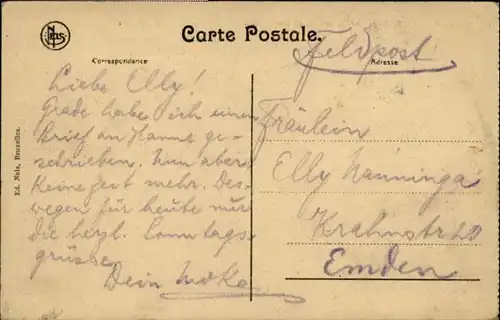 Nels
Carte Postale.
Feldpost
Correspondance
Adresse
Liebe Elly!
Grade habe ich einen
Brief an Hanne ge-
schrieben. Nun aber
keine Zeit mehr. Des-
wegen für heute nur
die herzl. Sonntags-
grüsse
Dein
Fräulein
Elly Nanninga
Krahnstr
Emden
Ed. Nels, Bruxelles.